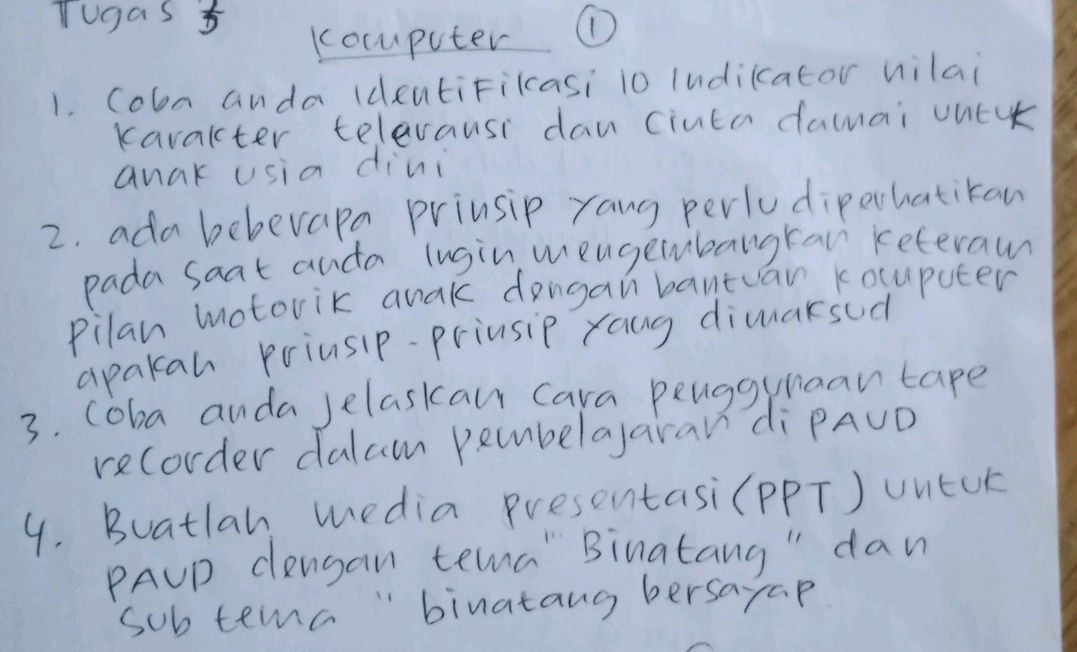 Tugas
Komputer ①
1. Coba anda identifikasi 10 indikator nilai
karakter teleransi dan cinta damai untuk
anak usia dini
2. ada beberapa prinsip yang perlu diperhatikan
pada saat anda ingin mengembangkan keteram
pilan motorik anak dengan bantuan komputer
apakah prinsip-prinsip yang dimaksud
3. Coba anda jelaskan cara penggunaan tape
recorder dalam pembelajaran di PAUD
4. Buatlah media presentasi (PPT) untuk
PAUD dengan tema "Binatang" dan
sub tema "binatang bersayap